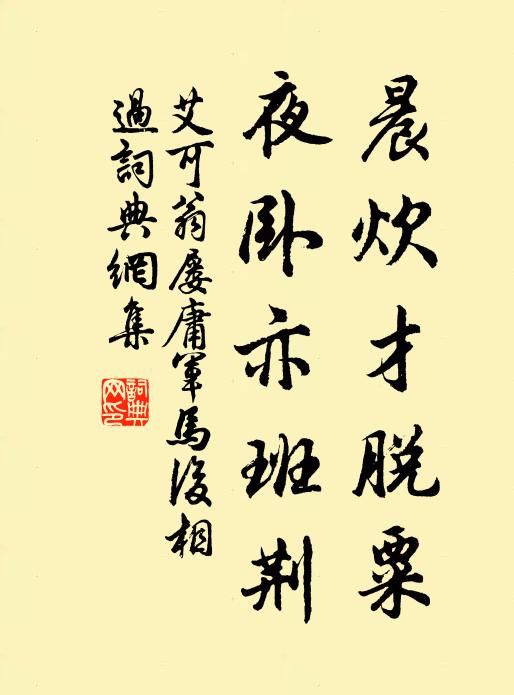 晨炊才脱粟
夜卧亦班荆
艾可翁屡庸军马後相
過詞典網集
詞典網印